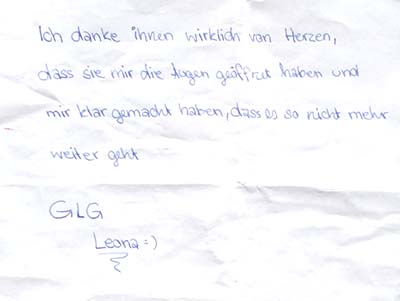 Ich danke ihnen wirklich von Herzen,
dass sie mir die Augen geöffnet haben und
mir klar gemacht haben, dass es so nicht mehr
weiter geht
GLG
Leona =)